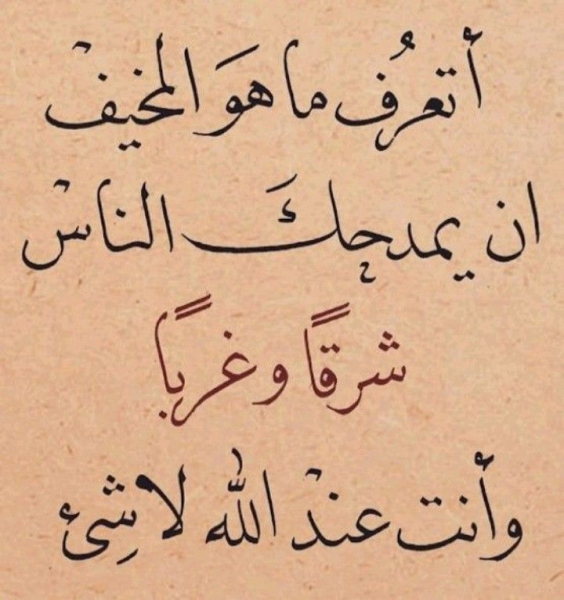 أتعرُف ما هوَ المخيفْ
ان يمدحك الناسْ
شرقًا وغربًا
وأنت عندْ الله لا شِئ